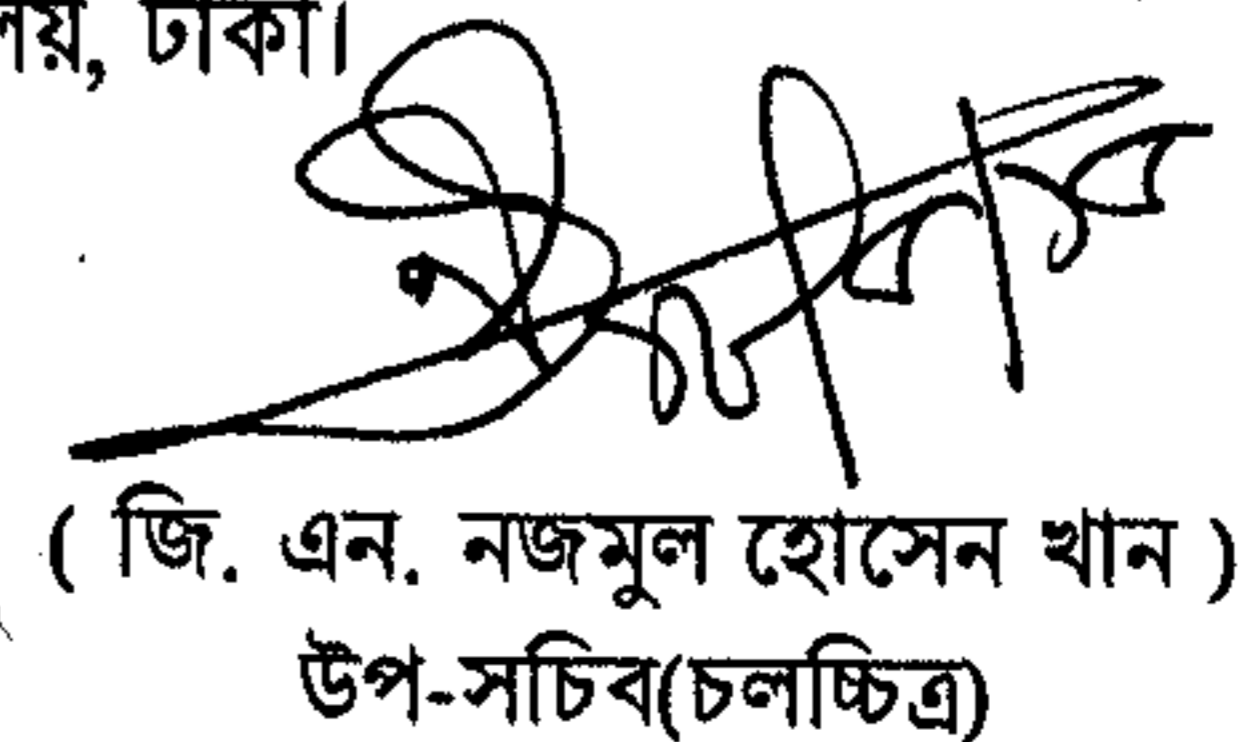 ঢাকা।
( জি. এন. নজমুল হোসেন খান )
উপ-সচিব(চলচ্চিত্র)